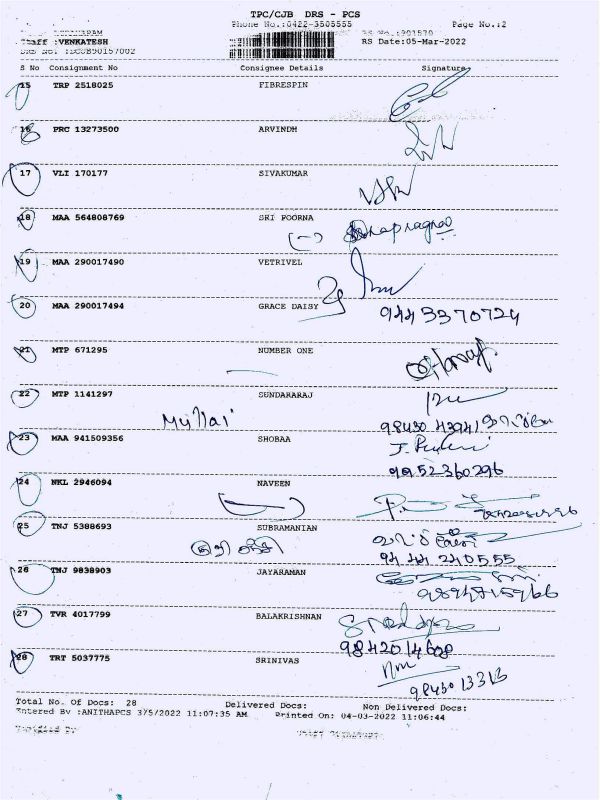 TPC/CJB DRS - PCS
Phone No.:0422-3505555 Page No.:2
Staff :VENKATESH RS Date:05-Mar-2022
S No Consignment No Consignee Details Signature
15 TRP 2518025 FIBRESPIN
16 PRC 13273500 ARVINDH
17 VLI 170177 SIVAKUMAR
18 MAA 564808769 SRI POORNA
19 MAA 290017490 VETRIVEL
20 MAA 290017494 GRACE DAISY
9443370724
21 MTP 671295 NUMBER ONE
22 MTP 1141297 SUNDARARAJ
Mullai 98430 43941
23 MAA 941509356 SHOBAA
9952360296
24 NKL 2946094 NAVEEN
25 TNJ 5388693 SUBRAMANIAN
94 44 240555
26 TNJ 9838903 JAYARAMAN
27 TVR 4017799 BALAKRISHNAN
9842014608
28 TRT 5037775 SRINIVAS
98430 13313
Total No. Of Docs: 28 Delivered Docs: Non Delivered Docs:
Entered By :ANITHAPCS 3/5/2022 11:07:35 AM Printed On: 04-03-2022 11:06:44